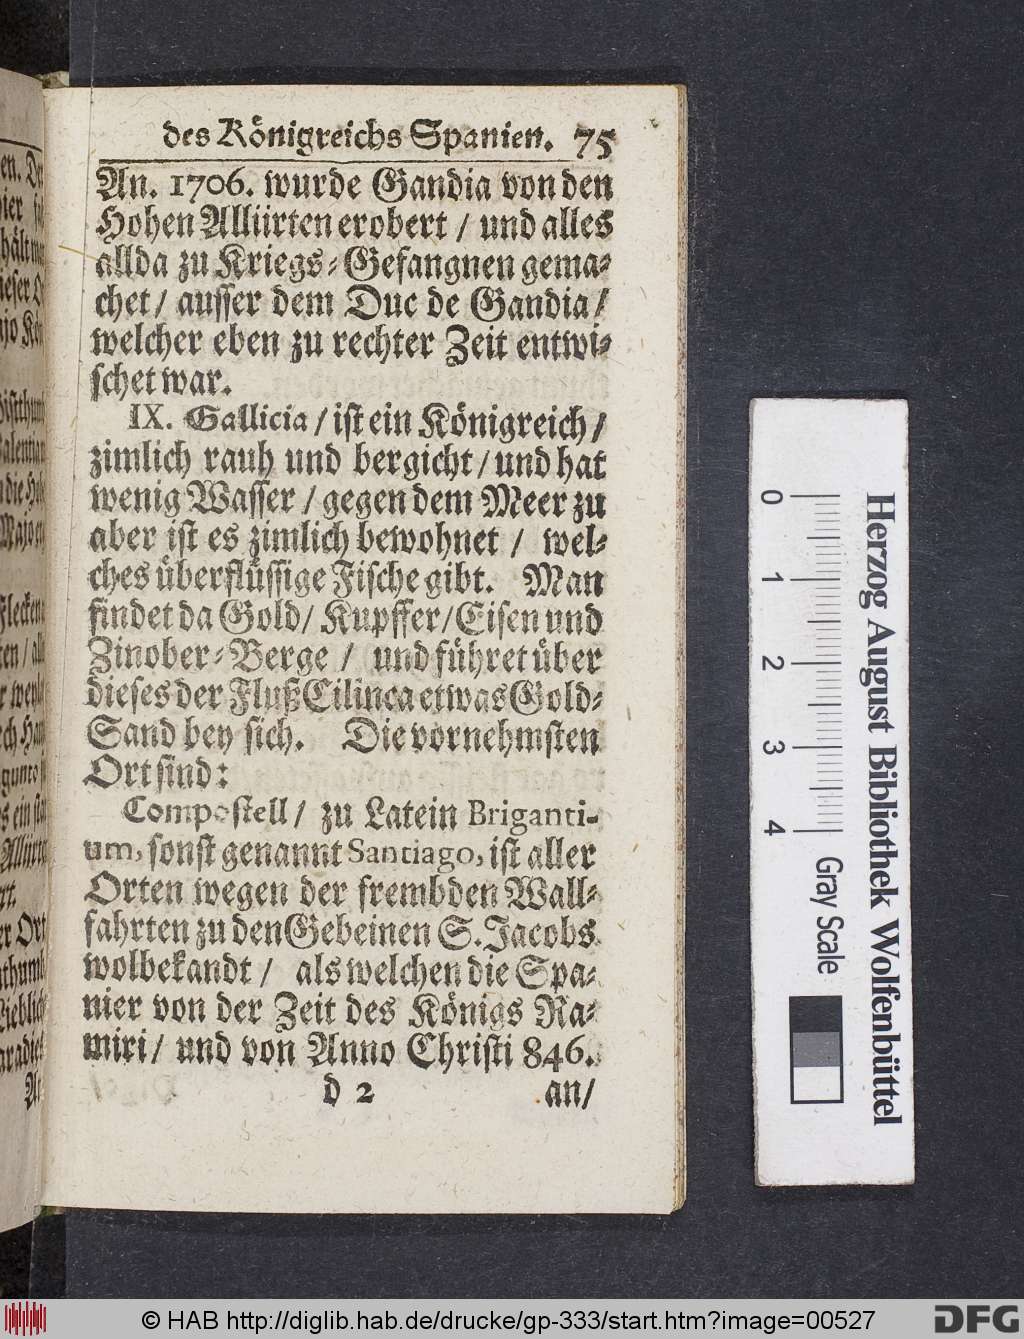 des Königreichs Spanien. 75
An. 1706. wurde Gandia von den
Hohen Alliirten erobert / und alles
allda zu Kriegs-Gefangnen gema-
chet / ausser dem Duc de Gandia /
welcher eben zu rechter Zeit entwi-
schet war.
IX. Gallicia / ist ein Königreich /
zimlich rauh und bergicht / und hat
wenig Wasser / gegen dem Meer zu
aber ist es zimlich bewohnet / wel-
ches überflüssige Fische gibt. Man
findet da Gold / Kupffer / Eisen und
Zinober-Berge / und führet über
dieses der Fluß Cilinca etwas Gold-
Sand bey sich. Die vornehmsten
Ort sind:
Compostell / zu Latein Briganti-
um, sonst genannt Santiago, ist aller
Orten wegen der frembden Wall-
fahrten zu den Gebeinen S. Jacobs
wolbekandt / als welchen die Spa-
nier von der Zeit des Königs Ra-
miri / und von Anno Christi 846.
d 2 an /
0 1 2 3 4
Gray Scale
Herzog August Bibliothek Wolfenbüttel
© HAB http://diglib.hab.de/drucke/gp-333/start.htm?image=00527
DFG